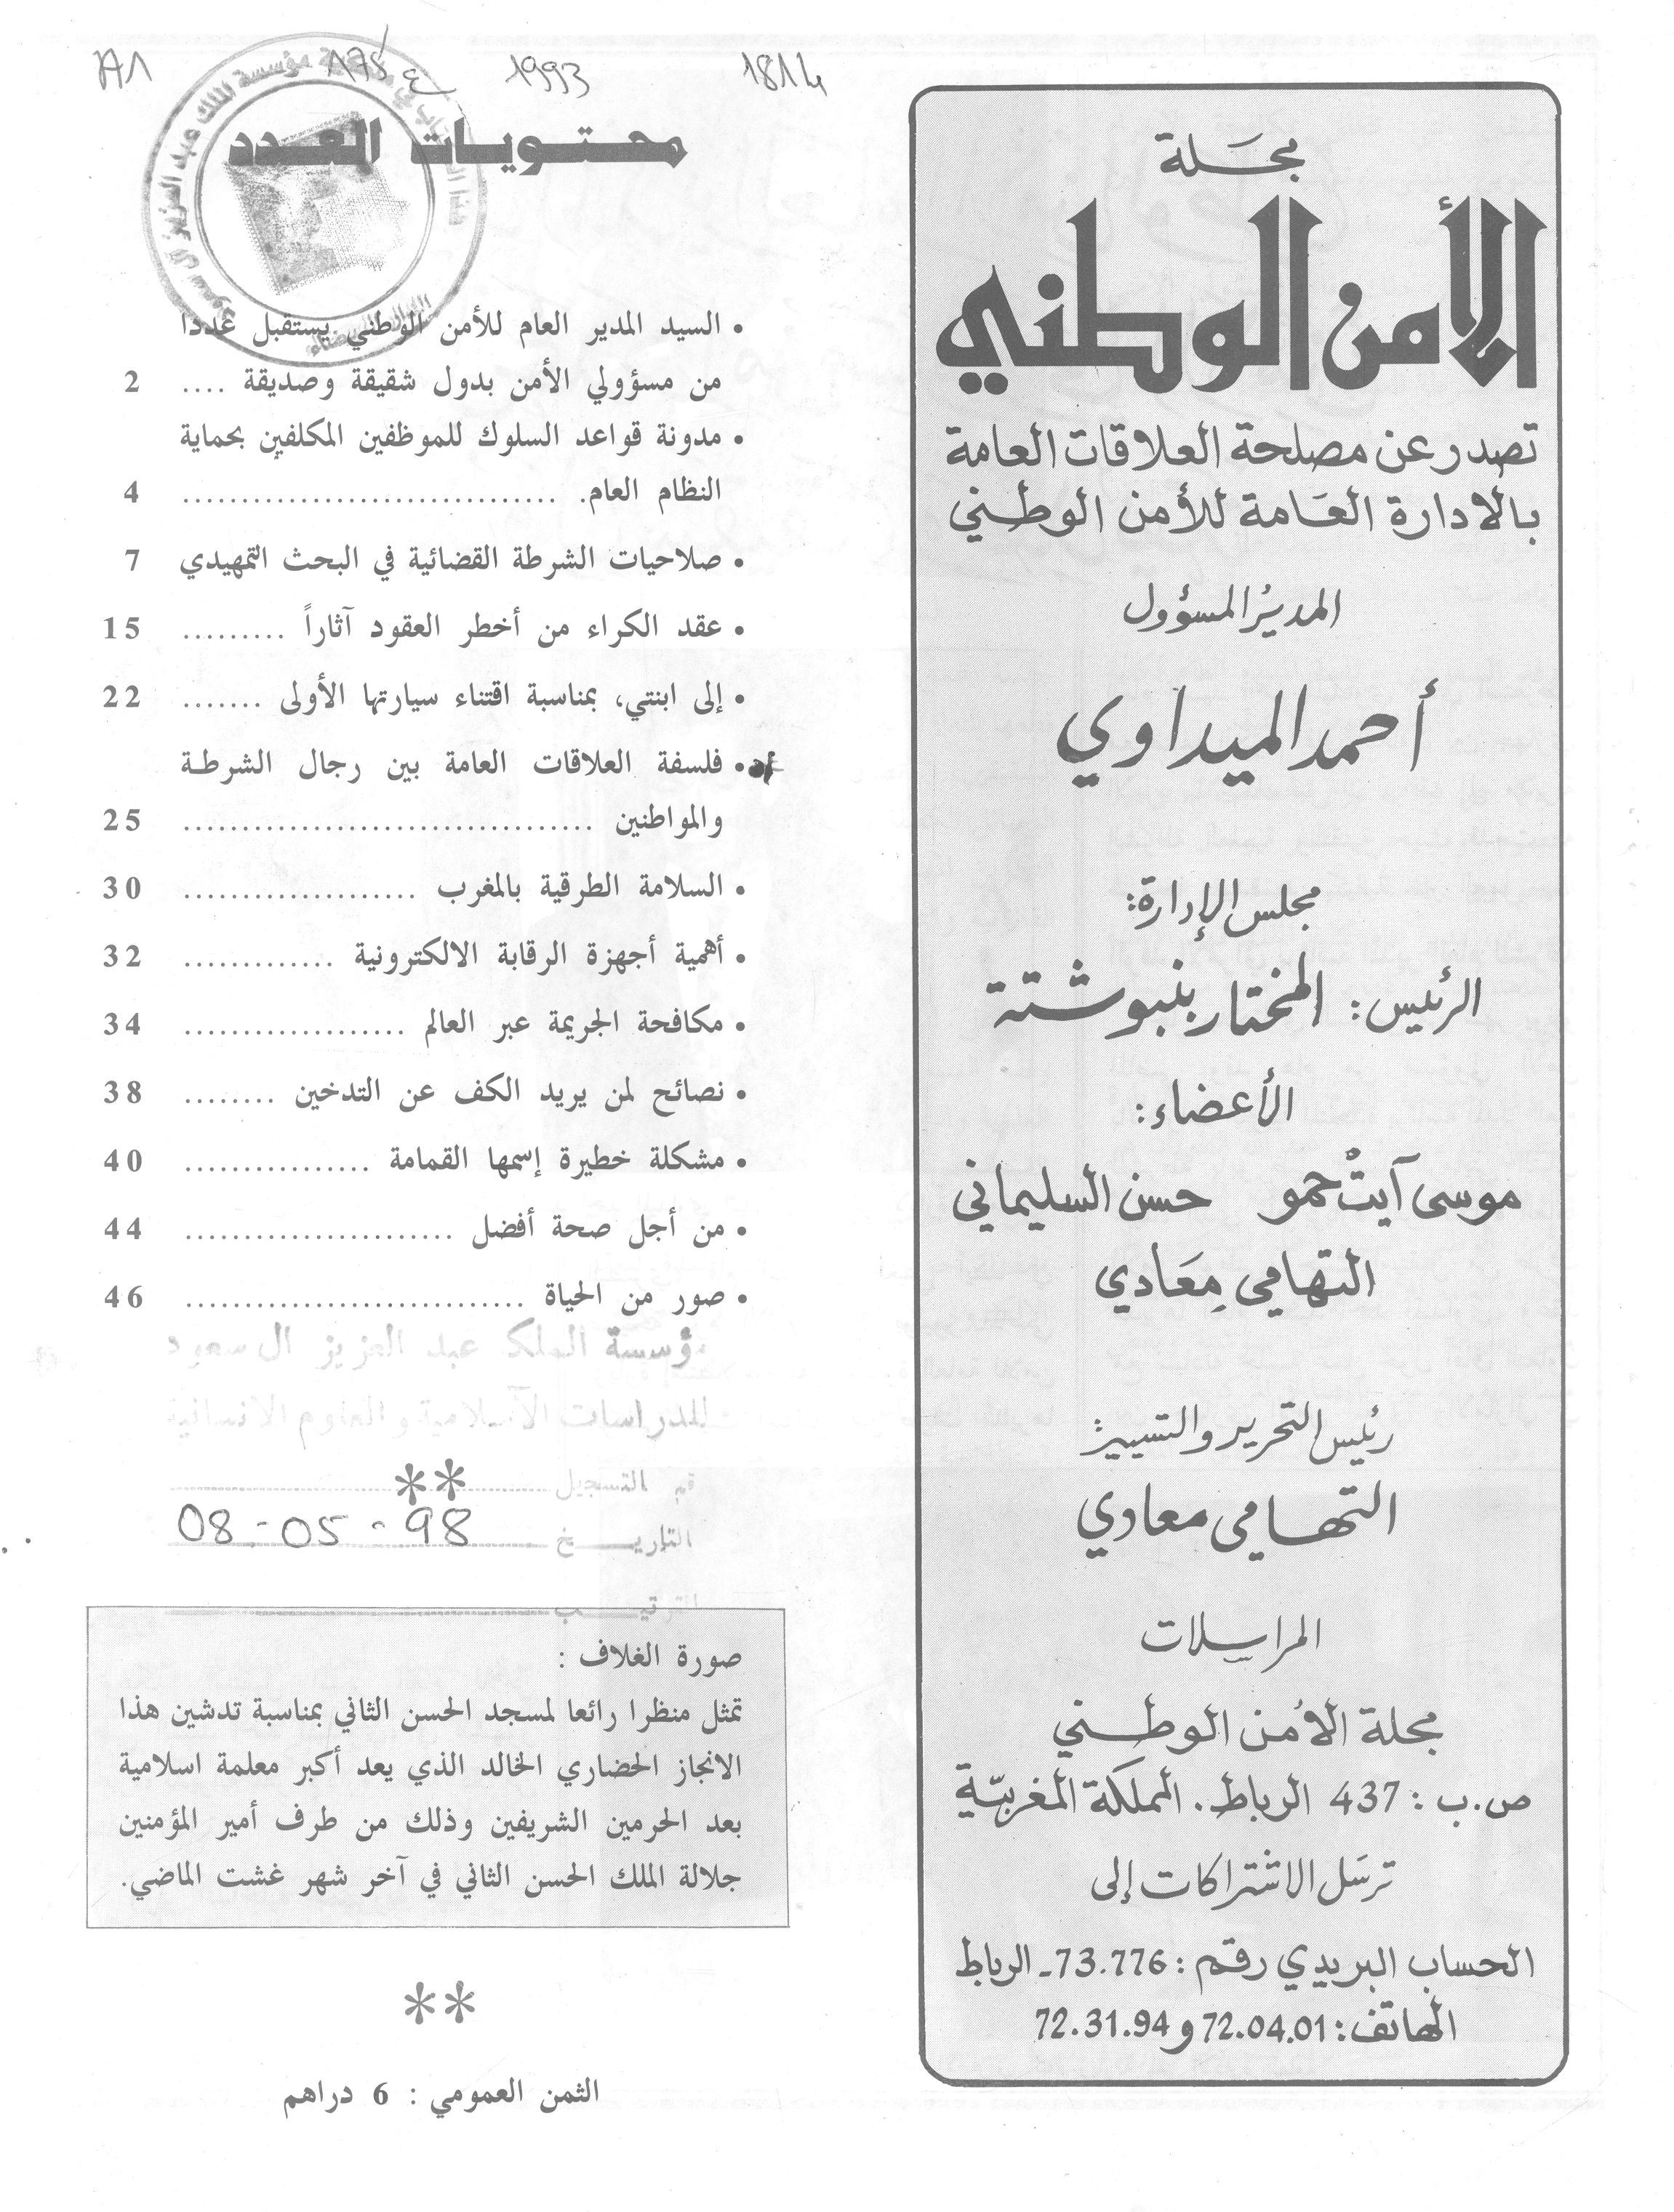 مجلة
الأمن الوطني
تصدر عن مصلحة العلاقات العامة
بالادارة العامة للأمن الوطني
المدير المسؤول
أحمد الميداوي
مجلس الإدارة:
الرئيس: المختار بنبوشتة
الأعضاء:
موسى آيت حمو حسن السليماني
التهامي معادي
رئيس التحرير والتسيير:
التهامي معادي
المراسلات
مجلة الأمن الوطني
ص.ب : 437 الرباط. المملكة المغربية
ترسل الاشتراكات إلى
الحساب البريدي رقم : 73.776 - الرباط
الهاتف: 72.04.01 و 72.31.94
1993 1814
محتويات العدد
• السيد المدير العام للأمن الوطني يستقبل عددا
من مسؤولي الأمن بدول شقيقة وصديقة .... 2
• مدونة قواعد السلوك للموظفين المكلفين بحماية
النظام العام. ................................ 4
• صلاحيات الشرطة القضائية في البحث التمهيدي 7
• عقد الكراء من أخطر العقود آثاراً ......... 15
• إلى ابنتي، بمناسبة اقتناء سيارتها الأولى ....... 22
• فلسفة العلاقات العامة بين رجال الشرطة
والمواطنين .................................... 25
• السلامة الطرقية بالمغرب .................... 30
• أهمية أجهزة الرقابة الالكترونية ............. 32
• مكافحة الجريمة عبر العالم ................... 34
• نصائح لمن يريد الكف عن التدخين ........ 38
• مشكلة خطيرة إسمها القمامة ................ 40
• من أجل صحة أفضل ....................... 44
• صور من الحياة ............................. 46
مؤسسة الملك عبد العزيز ال سعود
للدراسات الاسلامية والعلوم الانسانية
**
التسجيل
التاريخ 08-05-98
الترتيب
صورة الغلاف :
تمثل منظرا رائعا لمسجد الحسن الثاني بمناسبة تدشين هذا
الانجاز الحضاري الخالد الذي يعد أكبر معلمة اسلامية
بعد الحرمين الشريفين وذلك من طرف أمير المؤمنين
جلالة الملك الحسن الثاني في آخر شهر غشت الماضي.
**
الثمن العمومي : 6 دراهم